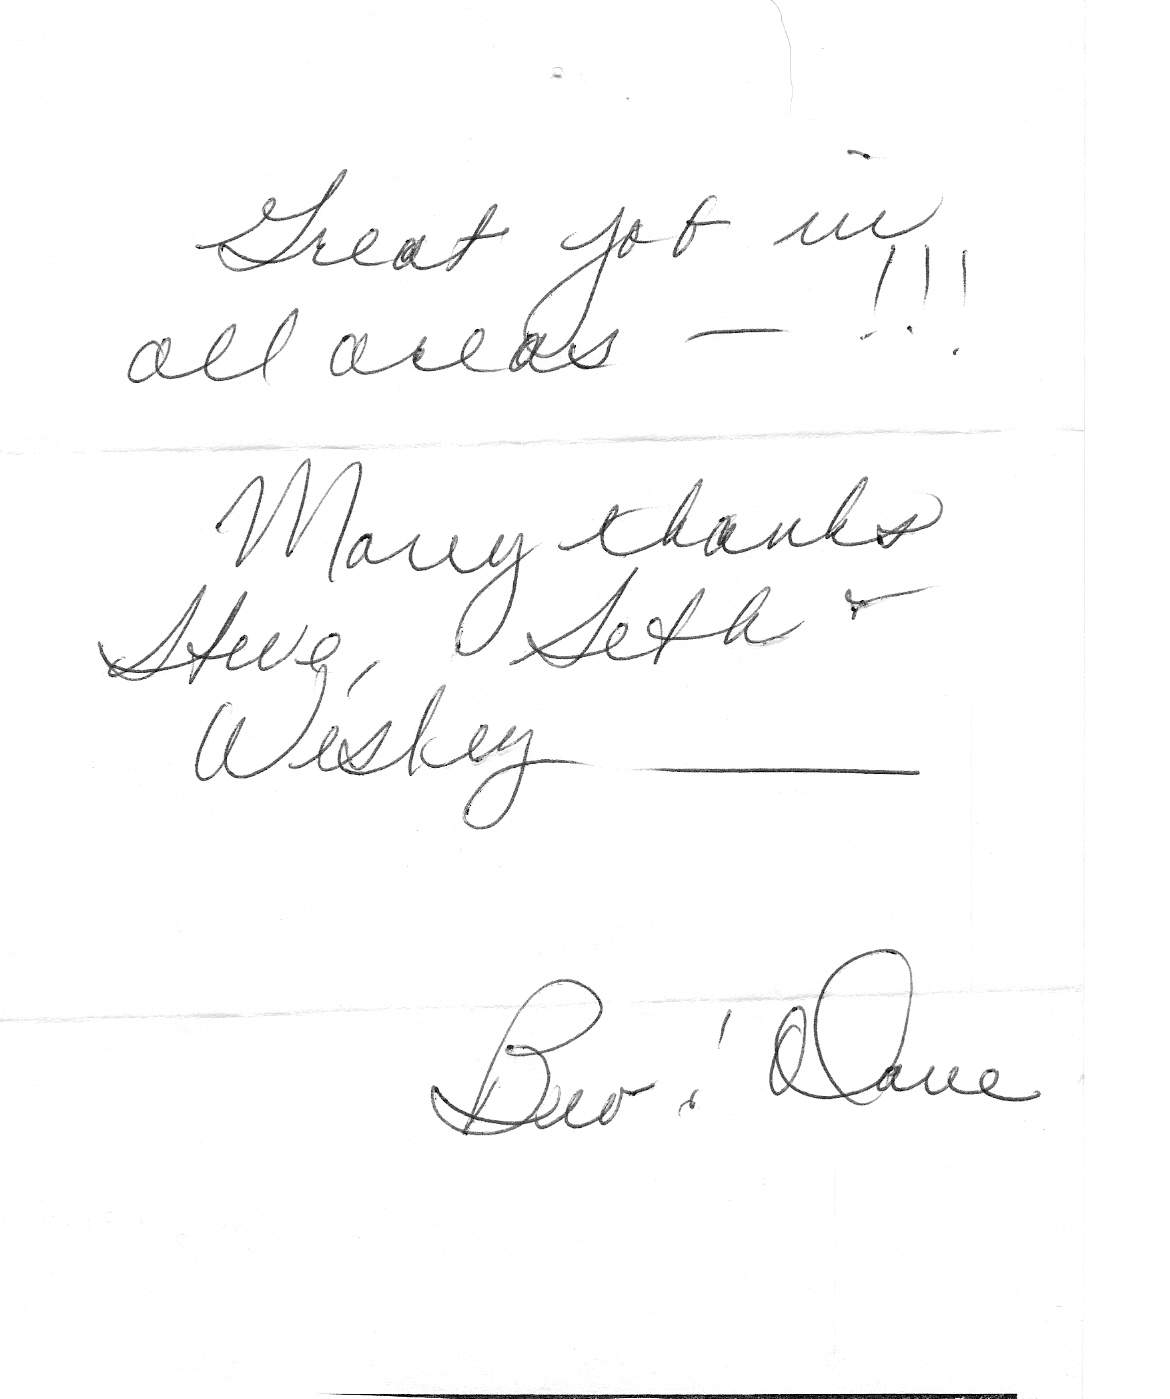 Great job in
all areas — !!!
Many thanks
Steve, Seth &
Weskey
Dave